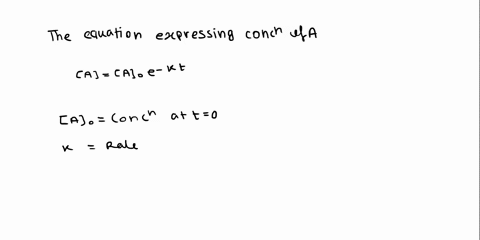 The equation expressing concn of A
[A] = [A]o e-kt
[A]o = Concn at t=0
k = Rate